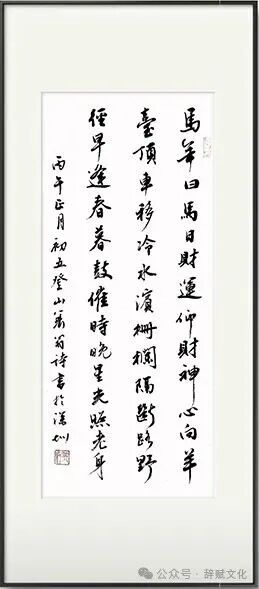 馬年曰馬日財運仰財神心向羊
臺頂車移冷水濱柵欄隔斷路野
徑早逢春暮鼓催時晚星光照老身
丙午正月初五登山翁詩書於深圳
公众号 · 辞赋文化